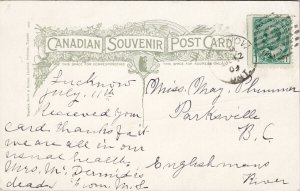 CANADIAN SOUVENIR POST CARD
THIS SPACE FOR CORRESPONDENCE
THIS SPACE FOR ADDRESS
Lucknow
July, 11th
Received your
card thanks fast
we are all in our
usual health.
Mrs. Mc Dermid is
dead. From M.
Miss May Plummer
Parksville
B.C.
Englishman's
River